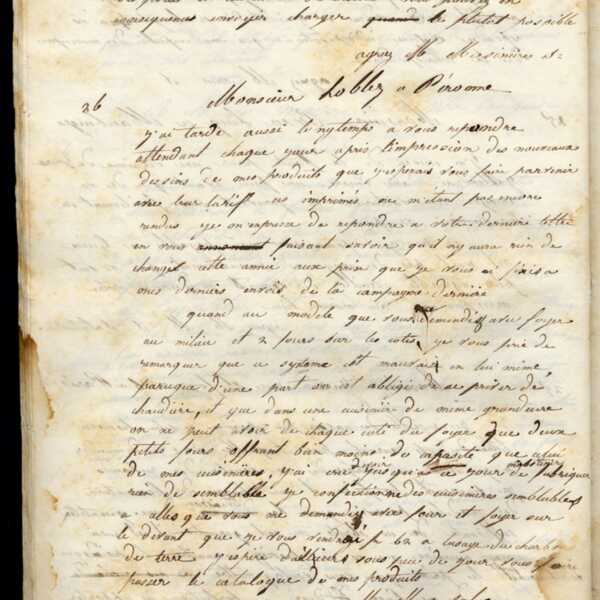 consequence envoyer charger quand le plutot possible
agreez M Messieurs et
26 Monsieur Loblez a Péronne
j'ai tardé aussi longtemps a vous repondre
attendant chaque jour apres l'impression des nouveaux
dessins de mes produits que j'esperais vous faire parvenir
avec leur tarif. ces imprimés ne m'etant pas encore
rendus je m'empresse de repondre a votre derniere lettre
en vous annoncant faisant savoir qu'il n'y aura rien de
changé cette année aux prix que je vous ai fixés a
mes derniers envois de la campagne derniere
quand au modele que vous me demandez avec foyer
au milieu et 2 fours sur les cotés, je vous prie de
remarquer que ce systeme est mauvais en lui meme,
parceque d'une part on est obligé de se priver de
chaudiere, et que dans une cuisiniere de meme grandeur
on ne peut avoir de chaque coté du foyer que deux
petits fours offrant bien moins de capasité que celui
de mes cuisinieres, j'ai cru devoir jusqu'a ce jour de fabriquer
rien de semblable je confectionne des cuisinieres semblables
a celles que vous me demandez avec four et foyer sur
le devant que je vous rendrai f 62 a l'usage du charbon
de terre j'espere d'ailleurs sous peu de jours vous faire
passer le catalogue de mes produits